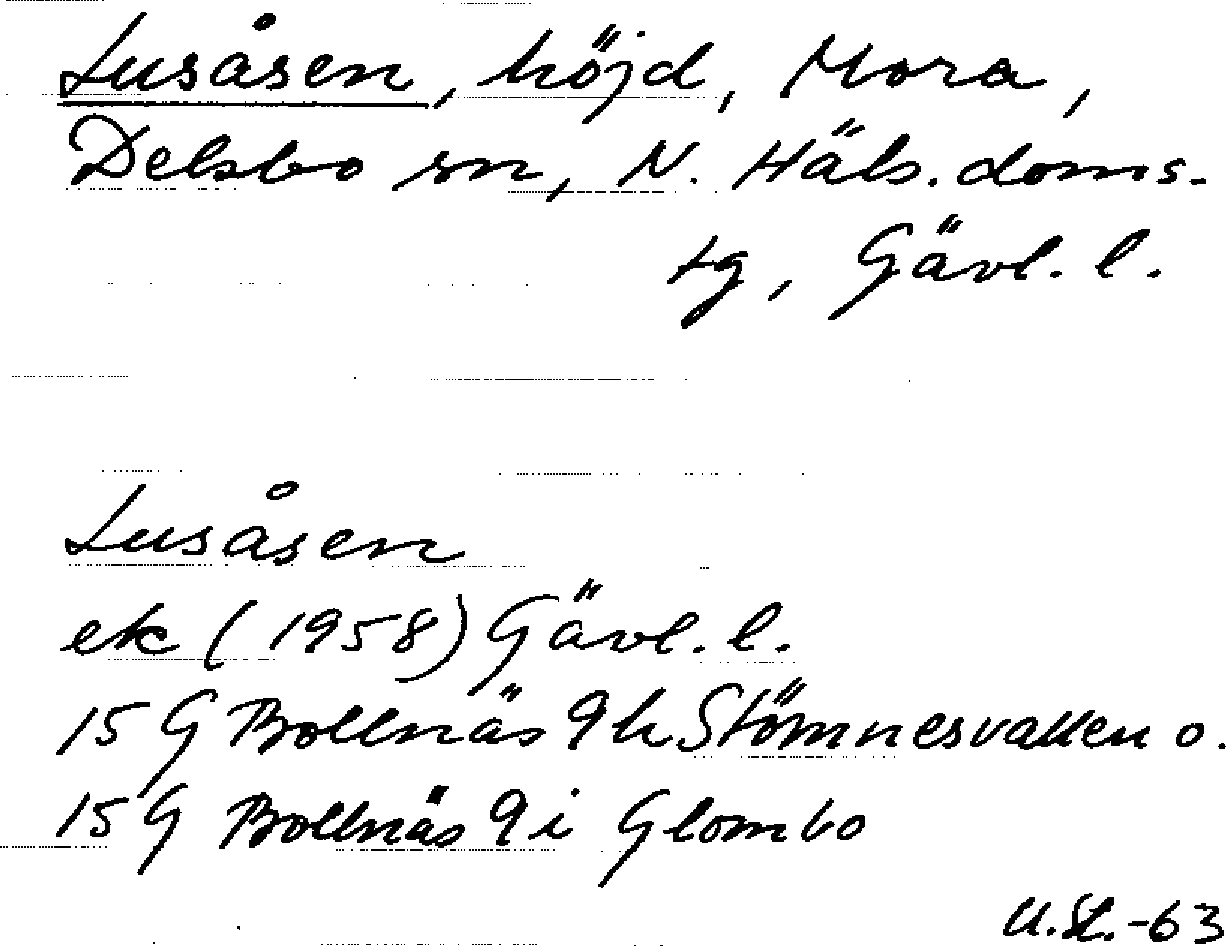 Lusåsen, höjd, Mora,
Delsbo sn, N. Häls. doms.
tg, Gävl. l.
Lusåsen
ek (1958) Gävl. l.
15 G Bollnäs 9 h Stömnesvallen o.
15 G Bollnäs 9 i Glombo
U.St.-63